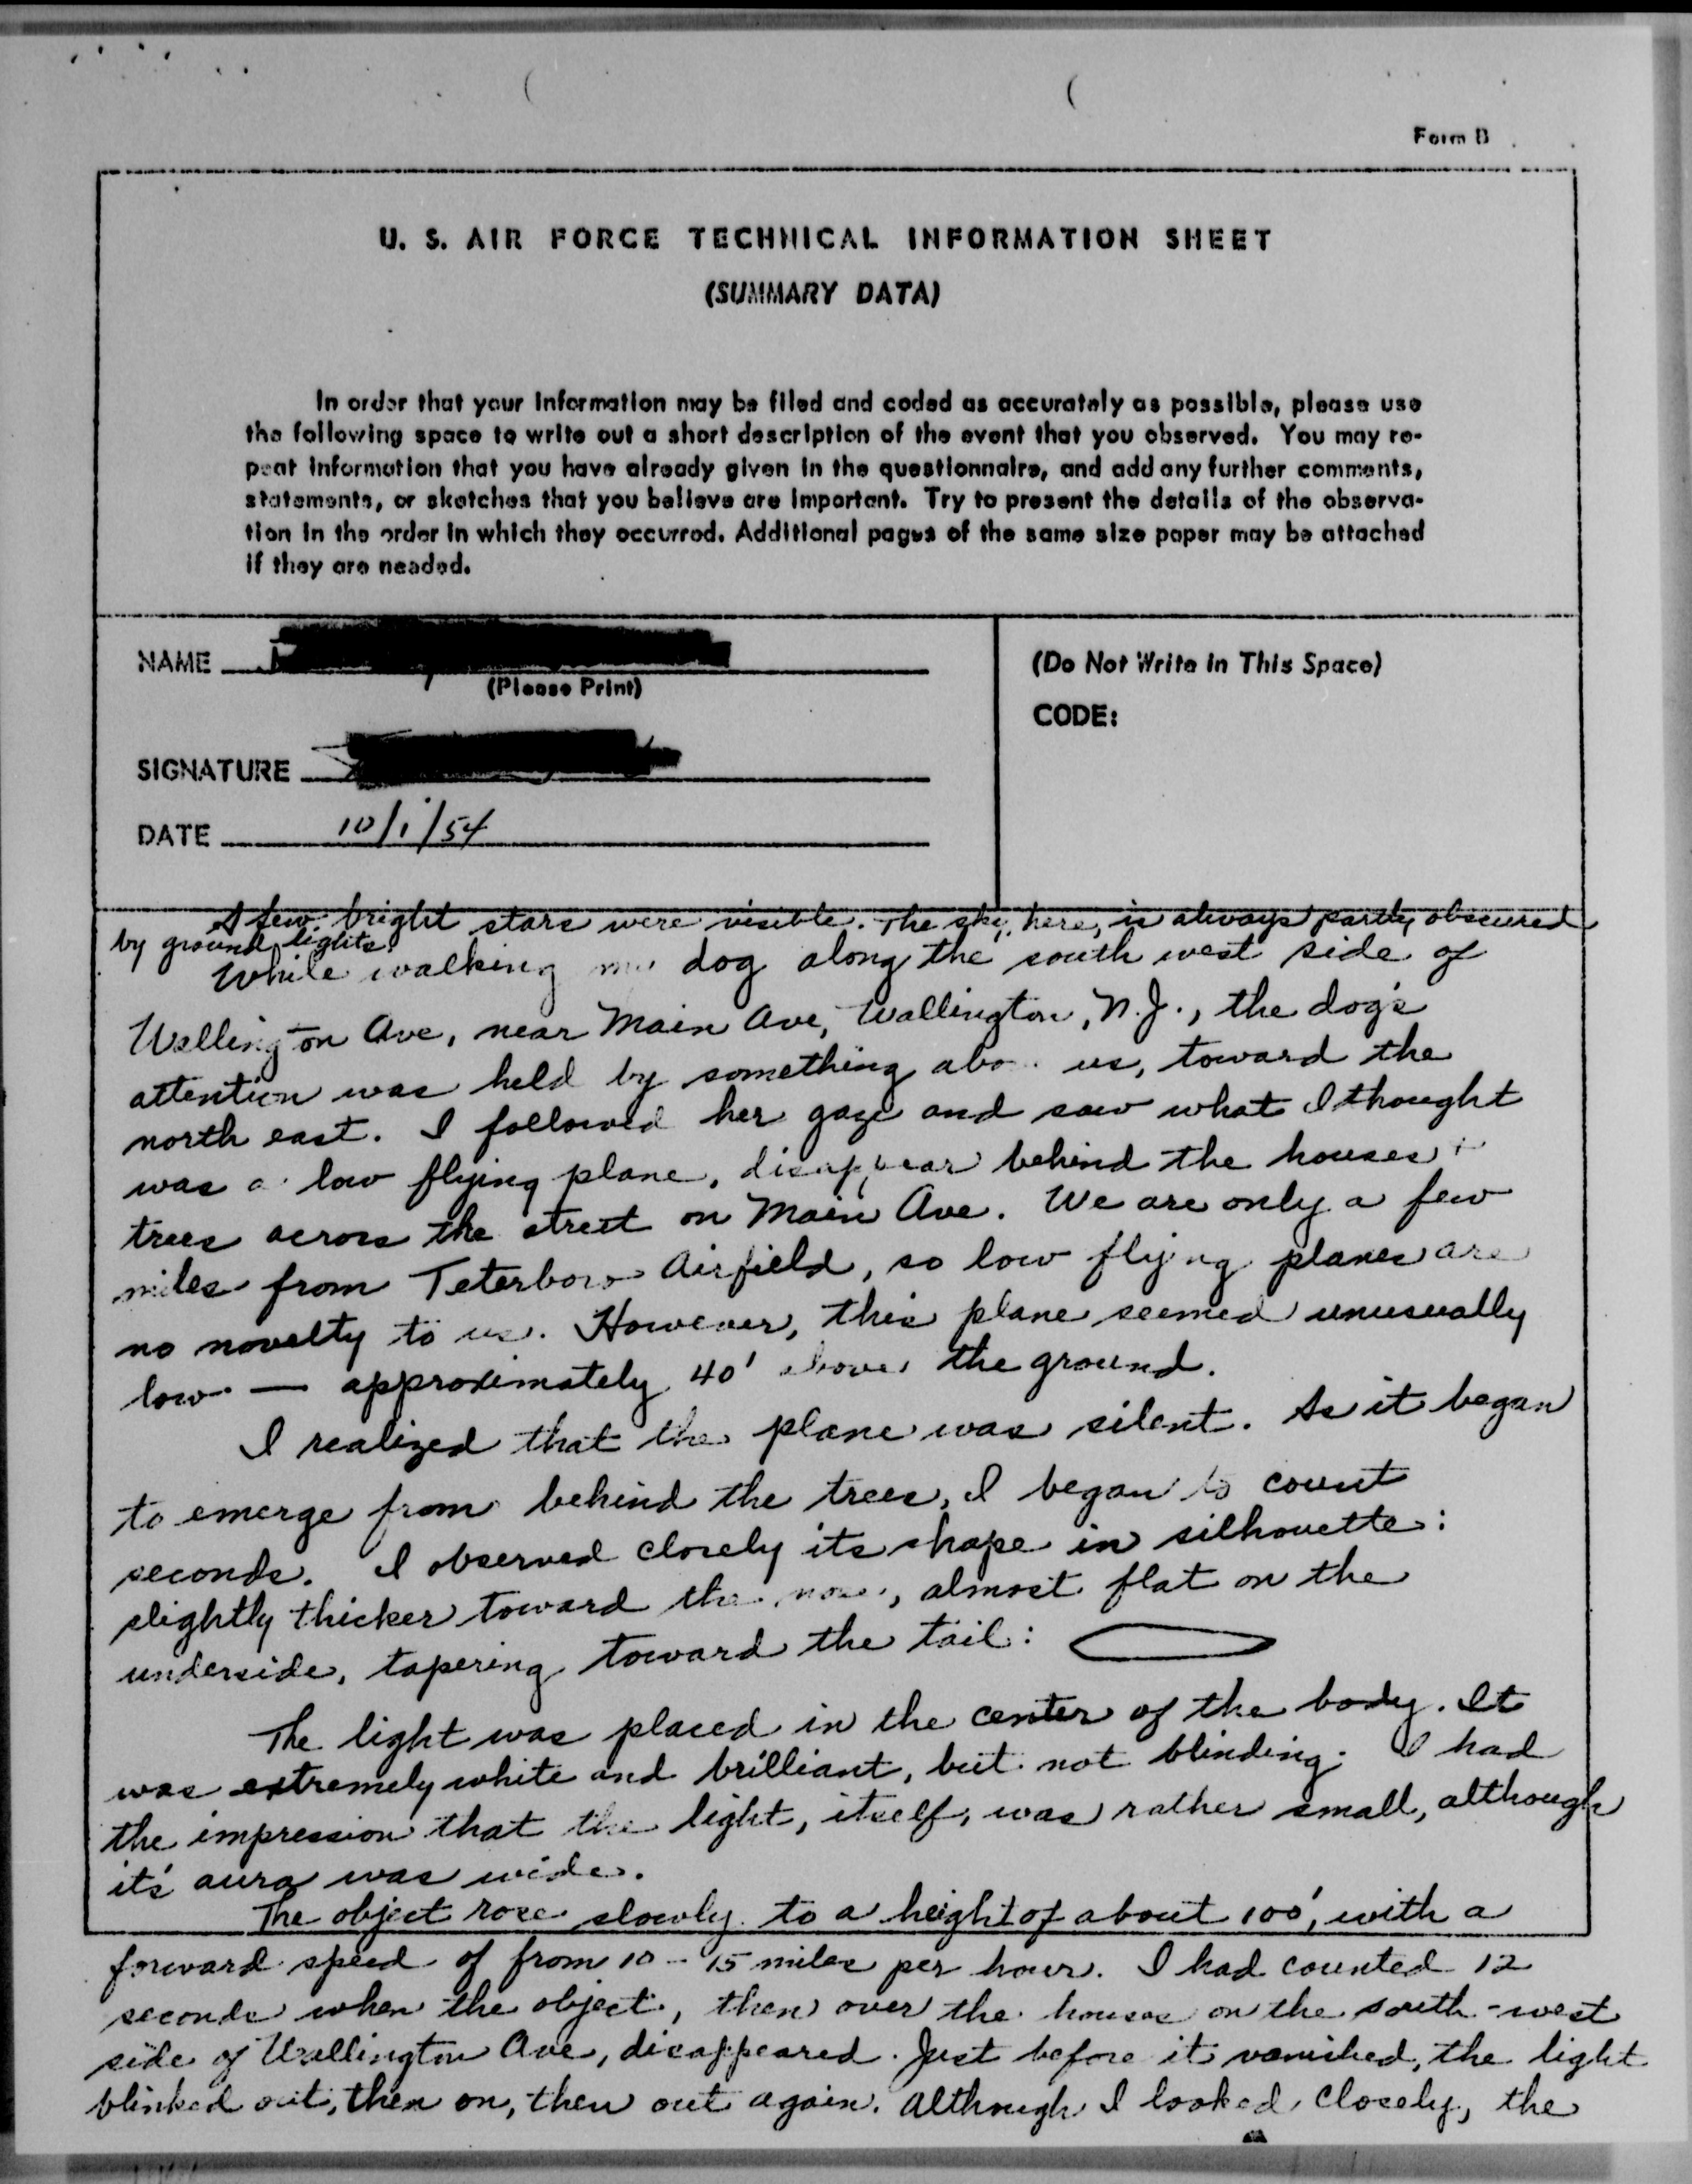 Form B
U. S. AIR FORCE TECHNICAL INFORMATION SHEET
(SUMMARY DATA)
In order that your information may be filed and coded as accurately as possible, please use
the following space to write out a short description of the event that you observed. You may re-
peat information that you have already given in the questionnaire, and add any further comments,
statements, or sketches that you believe are important. Try to present the details of the observa-
tion in the order in which they occurred. Additional pages of the same size paper may be attached
if they are needed.
NAME
(Please Print)
SIGNATURE
DATE 10/1/54
(Do Not Write in This Space)
CODE:
A few bright stars were visible. The sky, here, is always partly obscured
by ground lights.
While walking my dog along the south west side of
Wallington Ave, near Main Ave, Wallington, N.J., the dog's
attention was held by something abo us, toward the
north east. I followed her gaze and saw what I thought
was a low flying plane, disappear behind the houses +
trees across the street on Main Ave. We are only a few
miles from Teterboro Airfield, so low flying planes are
no novelty to us. However, this plane seemed unusually
low — approximately 40' above the ground.
I realized that the plane was silent. As it began
to emerge from behind the trees, I began to count
seconds. I observed closely its shape in silhouette:
slightly thicker toward the nose, almost flat on the
underside, tapering toward the tail:
The light was placed in the center of the body. It
was extremely white and brilliant, but not blinding. I had
the impression that the light, itself, was rather small, although
it's aura was wide.
The object rose slowly to a height of about 100', with a
forward speed of from 10 - 15 miles per hour. I had counted 12
seconds when the object, then over the houses on the south-west
side of Wallington Ave, disappeared. Just before it vanished, the light
blinked out, then on, then out again. Although I looked closely, the